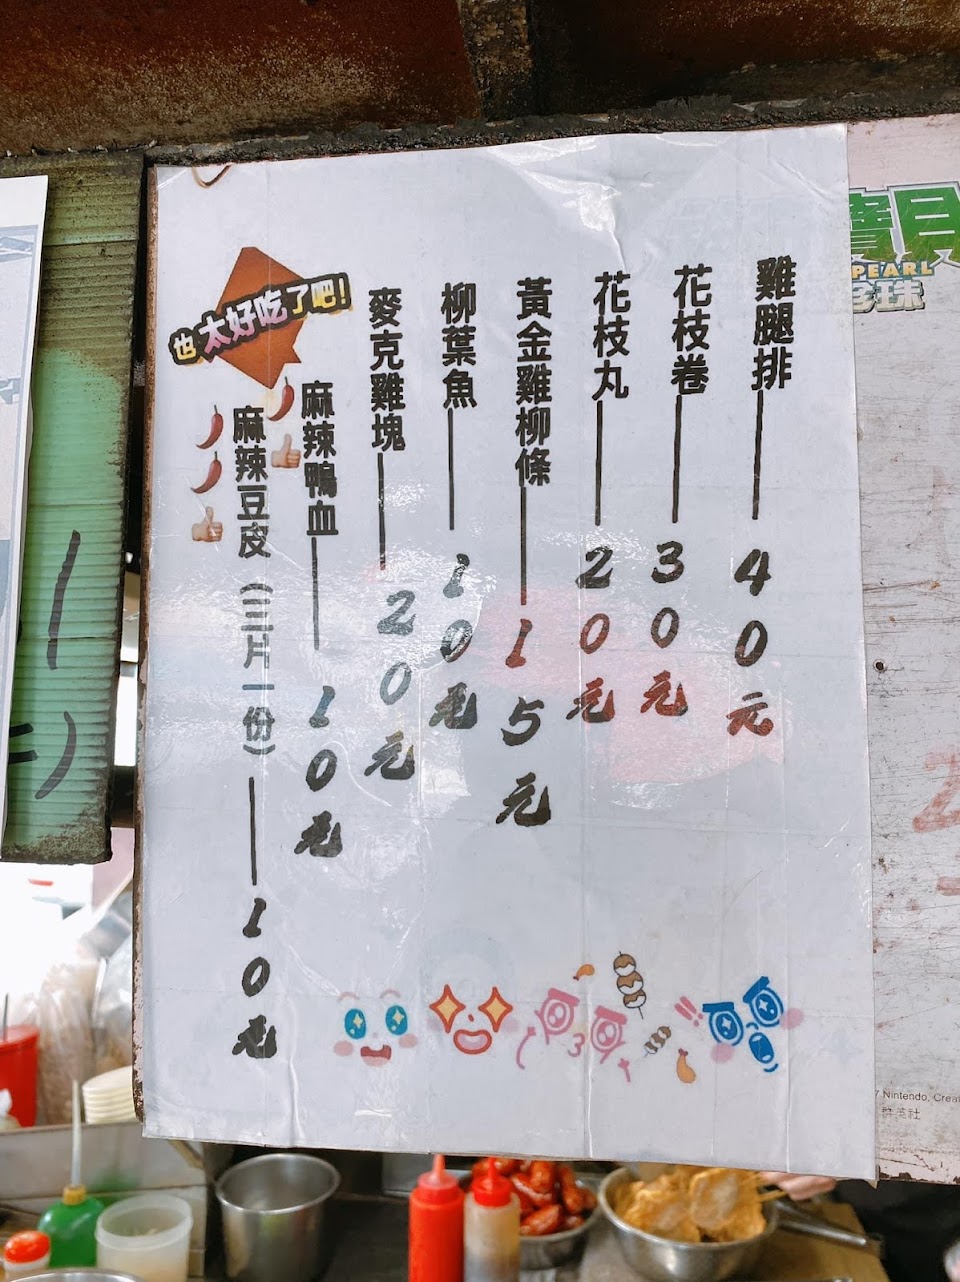 雞腿排——40元
花枝卷——30元
花枝丸——20元
黃金雞柳條——15元
柳葉魚——10元
麥克雞塊——20元
麻辣鴨血——10元
麻辣豆皮（三片一份）——10元
也太好吃了吧！
寶貝
PEARL
珍珠
7 Nintendo, Crea